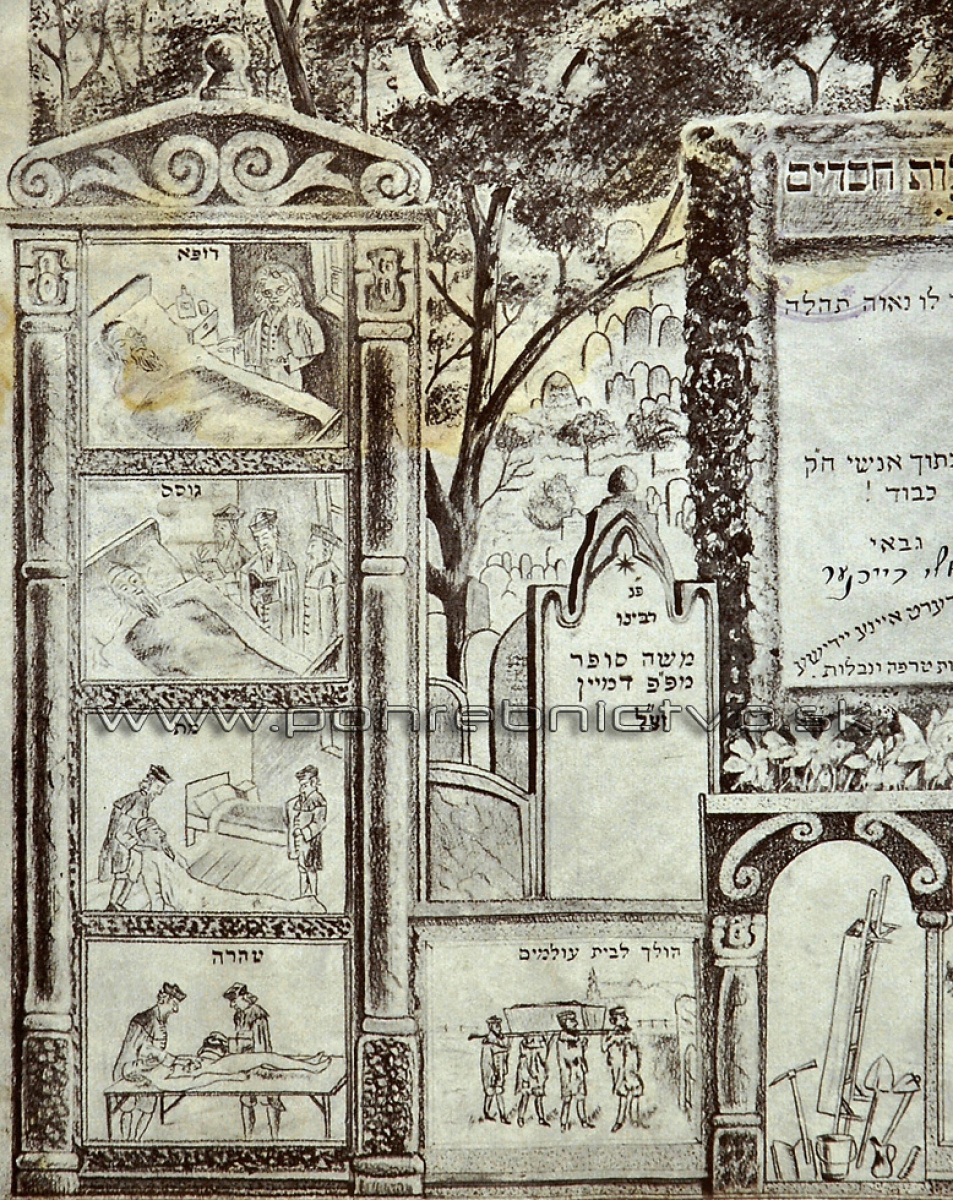 רופא
גוסס
מת
טהרה
פנ
רבינו
משה סופר
מפ״פ דמיין
זצ״ל
הולך לבית עולמים
חסדים
לו נאוה תהלה
אנשי ח״ק
כבוד !
גבאי
איינע יידישע
טרפה ונבלות.
www.pohrebnictvo.sk